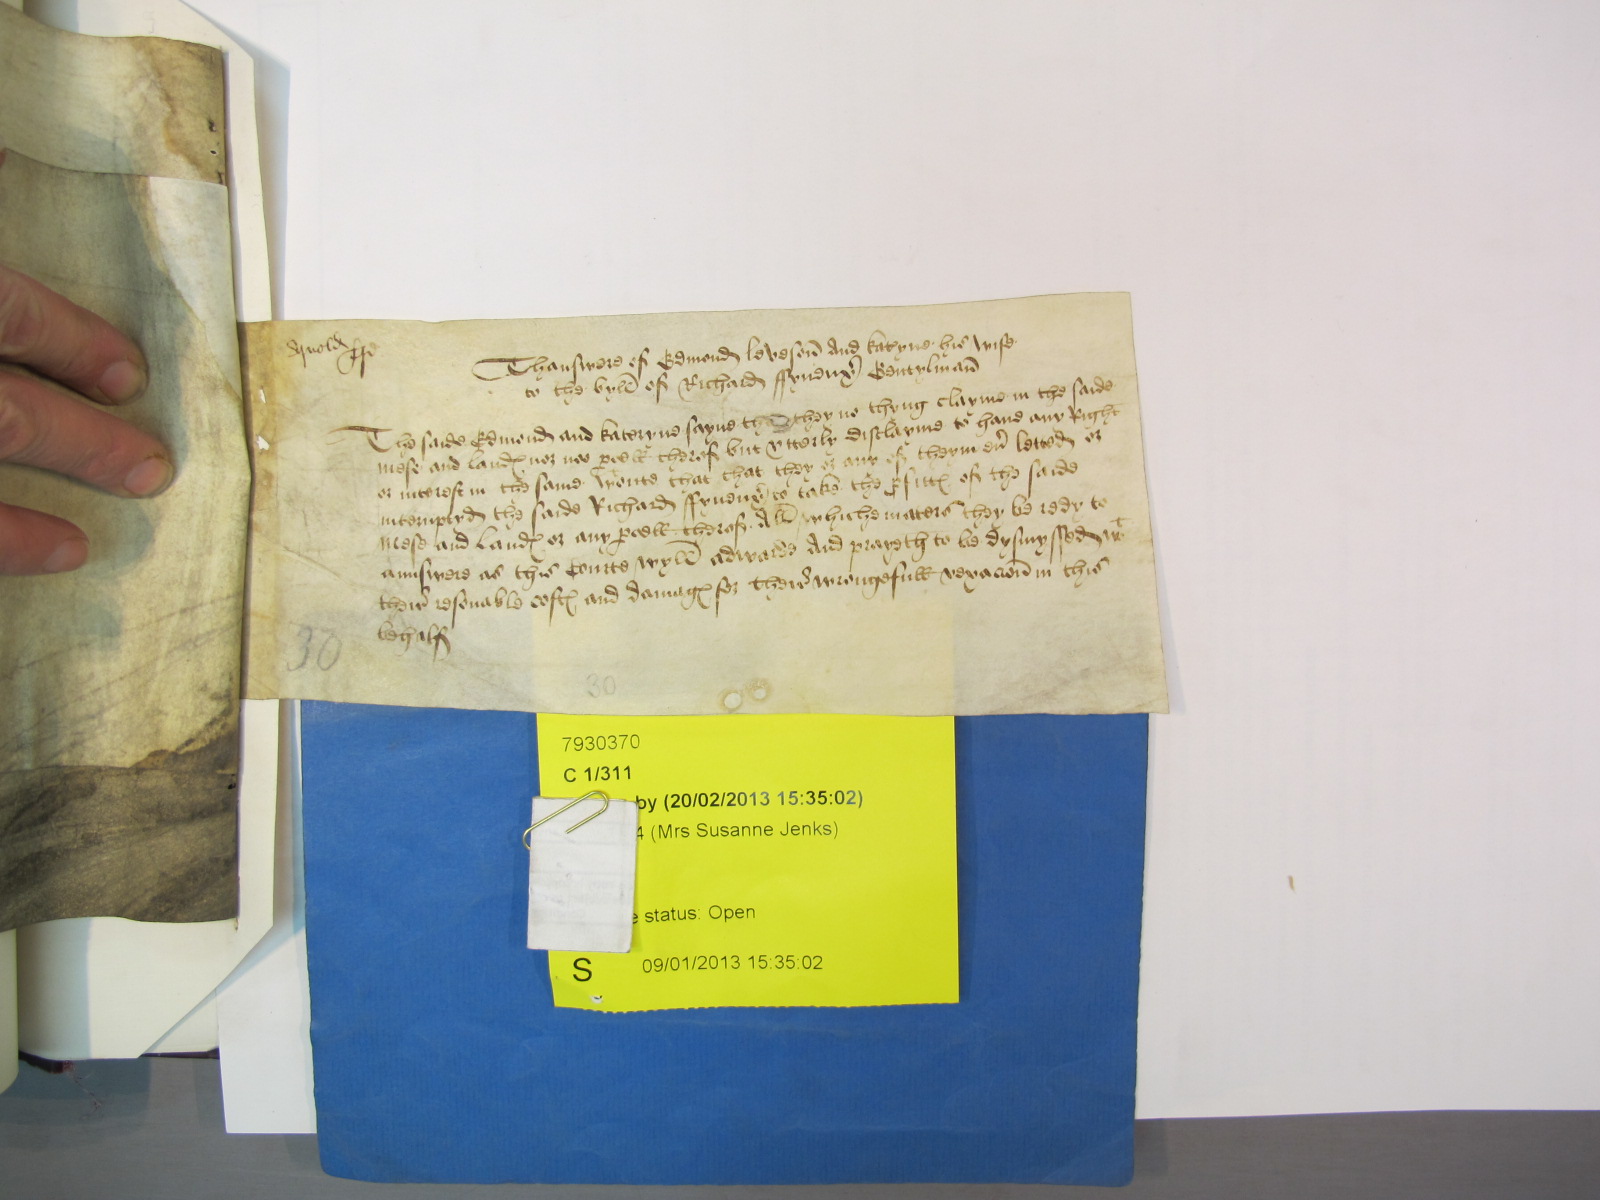 Thansware of Edmond leveson And Kateryne his wife
to the byll of Richard ffyneux Gentylman
The saide Edmond and Kateryne sayne tha they no thyng clayme in the saide
mese and land nor noo peell therof but vtterly disclayme to haue any Right
or interest in the same Wonte that that they or any of theym eu letted or
interupted the saide Richard ffyneux to take the pfittes of the saide
Mese and Land or any peell therof All whiche maters they be redy to
aunswere as this Courte wyll adwarde And prayeth to be dysmyssed wt
their resonable costes and damages for their wrongefull vexacion in this
behalf
30
30
7930370
C 1/311
by (20/02/2013 15:35:02)
4 (Mrs Susanne Jenks)
e status: Open
S 09/01/2013 15:35:02